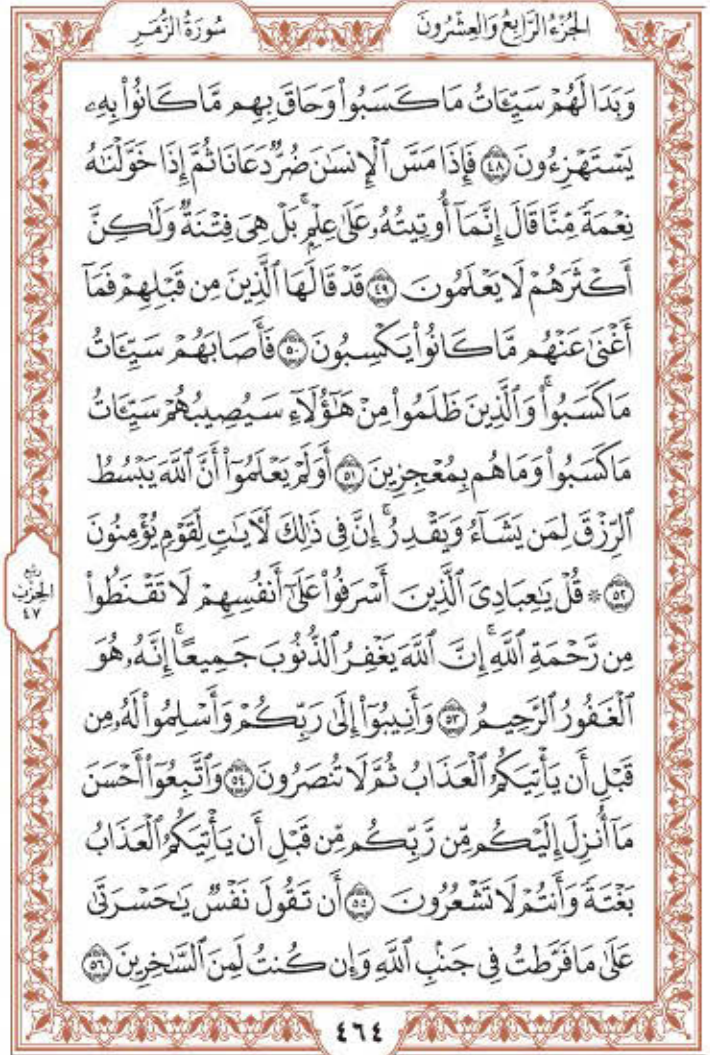 الجُزْءُ الرَّابِعُ وَالعِشْرُونَ
سُورَةُ الزُّمَرِ
وَبَدَا لَهُمْ سَيِّـَٔاتُ مَا كَسَبُوا۟ وَحَاقَ بِهِم مَّا كَانُوا۟ بِهِۦ
يَسْتَهْزِءُونَ ٤٨ فَإِذَا مَسَّ ٱلْإِنسَٰنَ ضُرٌّ دَعَانَا ثُمَّ إِذَا خَوَّلْنَٰهُ
نِعْمَةً مِّنَّا قَالَ إِنَّمَآ أُوتِيتُهُۥ عَلَىٰ عِلْمٍۭ ۚ بَلْ هِىَ فِتْنَةٌ وَلَٰكِنَّ
أَكْثَرَهُمْ لَا يَعْلَمُونَ ٤٩ قَدْ قَالَهَا ٱلَّذِينَ مِن قَبْلِهِمْ فَمَآ
أَغْنَىٰ عَنْهُم مَّا كَانُوا۟ يَكْسِبُونَ ٥٠ فَأَصَابَهُمْ سَيِّـَٔاتُ
مَا كَسَبُوا۟ ۚ وَٱلَّذِينَ ظَلَمُوا۟ مِنْ هَٰٓؤُلَآءِ سَيُصِيبُهُمْ سَيِّـَٔاتُ
مَا كَسَبُوا۟ وَمَا هُم بِمُعْجِزِينَ ٥١ أَوَلَمْ يَعْلَمُوٓا۟ أَنَّ ٱللَّهَ يَبْسُطُ
ٱلرِّزْقَ لِمَن يَشَآءُ وَيَقْدِرُ ۚ إِنَّ فِى ذَٰلِكَ لَءَايَٰتٍ لِّقَوْمٍ يُؤْمِنُونَ
٥٢ ۞ قُلْ يَٰعِبَادِىَ ٱلَّذِينَ أَسْرَفُوا۟ عَلَىٰٓ أَنفُسِهِمْ لَا تَقْنَطُوا۟
مِن رَّحْمَةِ ٱللَّهِ ۚ إِنَّ ٱللَّهَ يَغْفِرُ ٱلذُّنُوبَ جَمِيعًا ۚ إِنَّهُۥ هُوَ
ٱلْغَفُورُ ٱلرَّحِيمُ ٥٣ وَأَنِيبُوٓا۟ إِلَىٰ رَبِّكُمْ وَأَسْلِمُوا۟ لَهُۥ مِن
قَبْلِ أَن يَأْتِيَكُمُ ٱلْعَذَابُ ثُمَّ لَا تُنصَرُونَ ٥٤ وَٱتَّبِعُوٓا۟ أَحْسَنَ
مَآ أُنزِلَ إِلَيْكُم مِّن رَّبِّكُم مِّن قَبْلِ أَن يَأْتِيَكُمُ ٱلْعَذَابُ
بَغْتَةً وَأَنتُمْ لَا تَشْعُرُونَ ٥٥ أَن تَقُولَ نَفْسٌ يَٰحَسْرَتَىٰ
عَلَىٰ مَا فَرَّطتُ فِى جَنۢبِ ٱللَّهِ وَإِن كُنتُ لَمِنَ ٱلسَّٰخِرِينَ ٥٦
رُبْعُ
الحِزْبِ
٤٧
٤٦٤